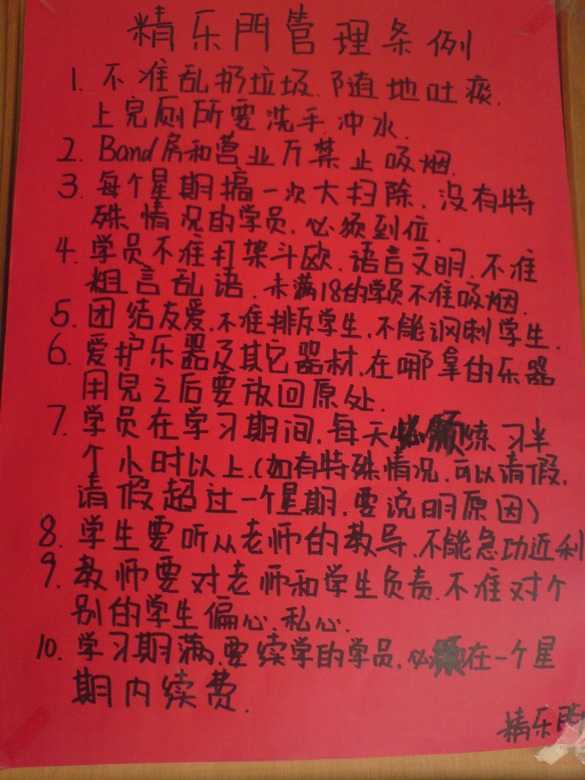 精乐門管理条例
1. 不准乱扔垃圾.随地吐痰.
上完厕所要洗手.冲水.
2. Band房和营业厅禁止吸烟.
3. 每个星期搞一次大扫除.没有特
殊情况的学员.必须到位.
4. 学员不准打架斗欧.语言文明.不准
粗言乱语.未满18的学员不准吸烟.
5. 团结友爱.不准排斥学生.不能讽刺学生.
6. 爱护乐器及其它器材.在哪拿的乐器
用完之后要放回原处.
7. 学员在学习期间.每天必须练习半
个小时以上.(如有特殊情况.可以请假.
请假超过一个星期.要说明原因)
8. 学生要听从老师的教导.不能急功近利
9. 教师要对老师和学生负责.不准对个
别的学生偏心.私心.
10. 学习期满.要续学的学员.必须在一个星
期内续费.
精乐門